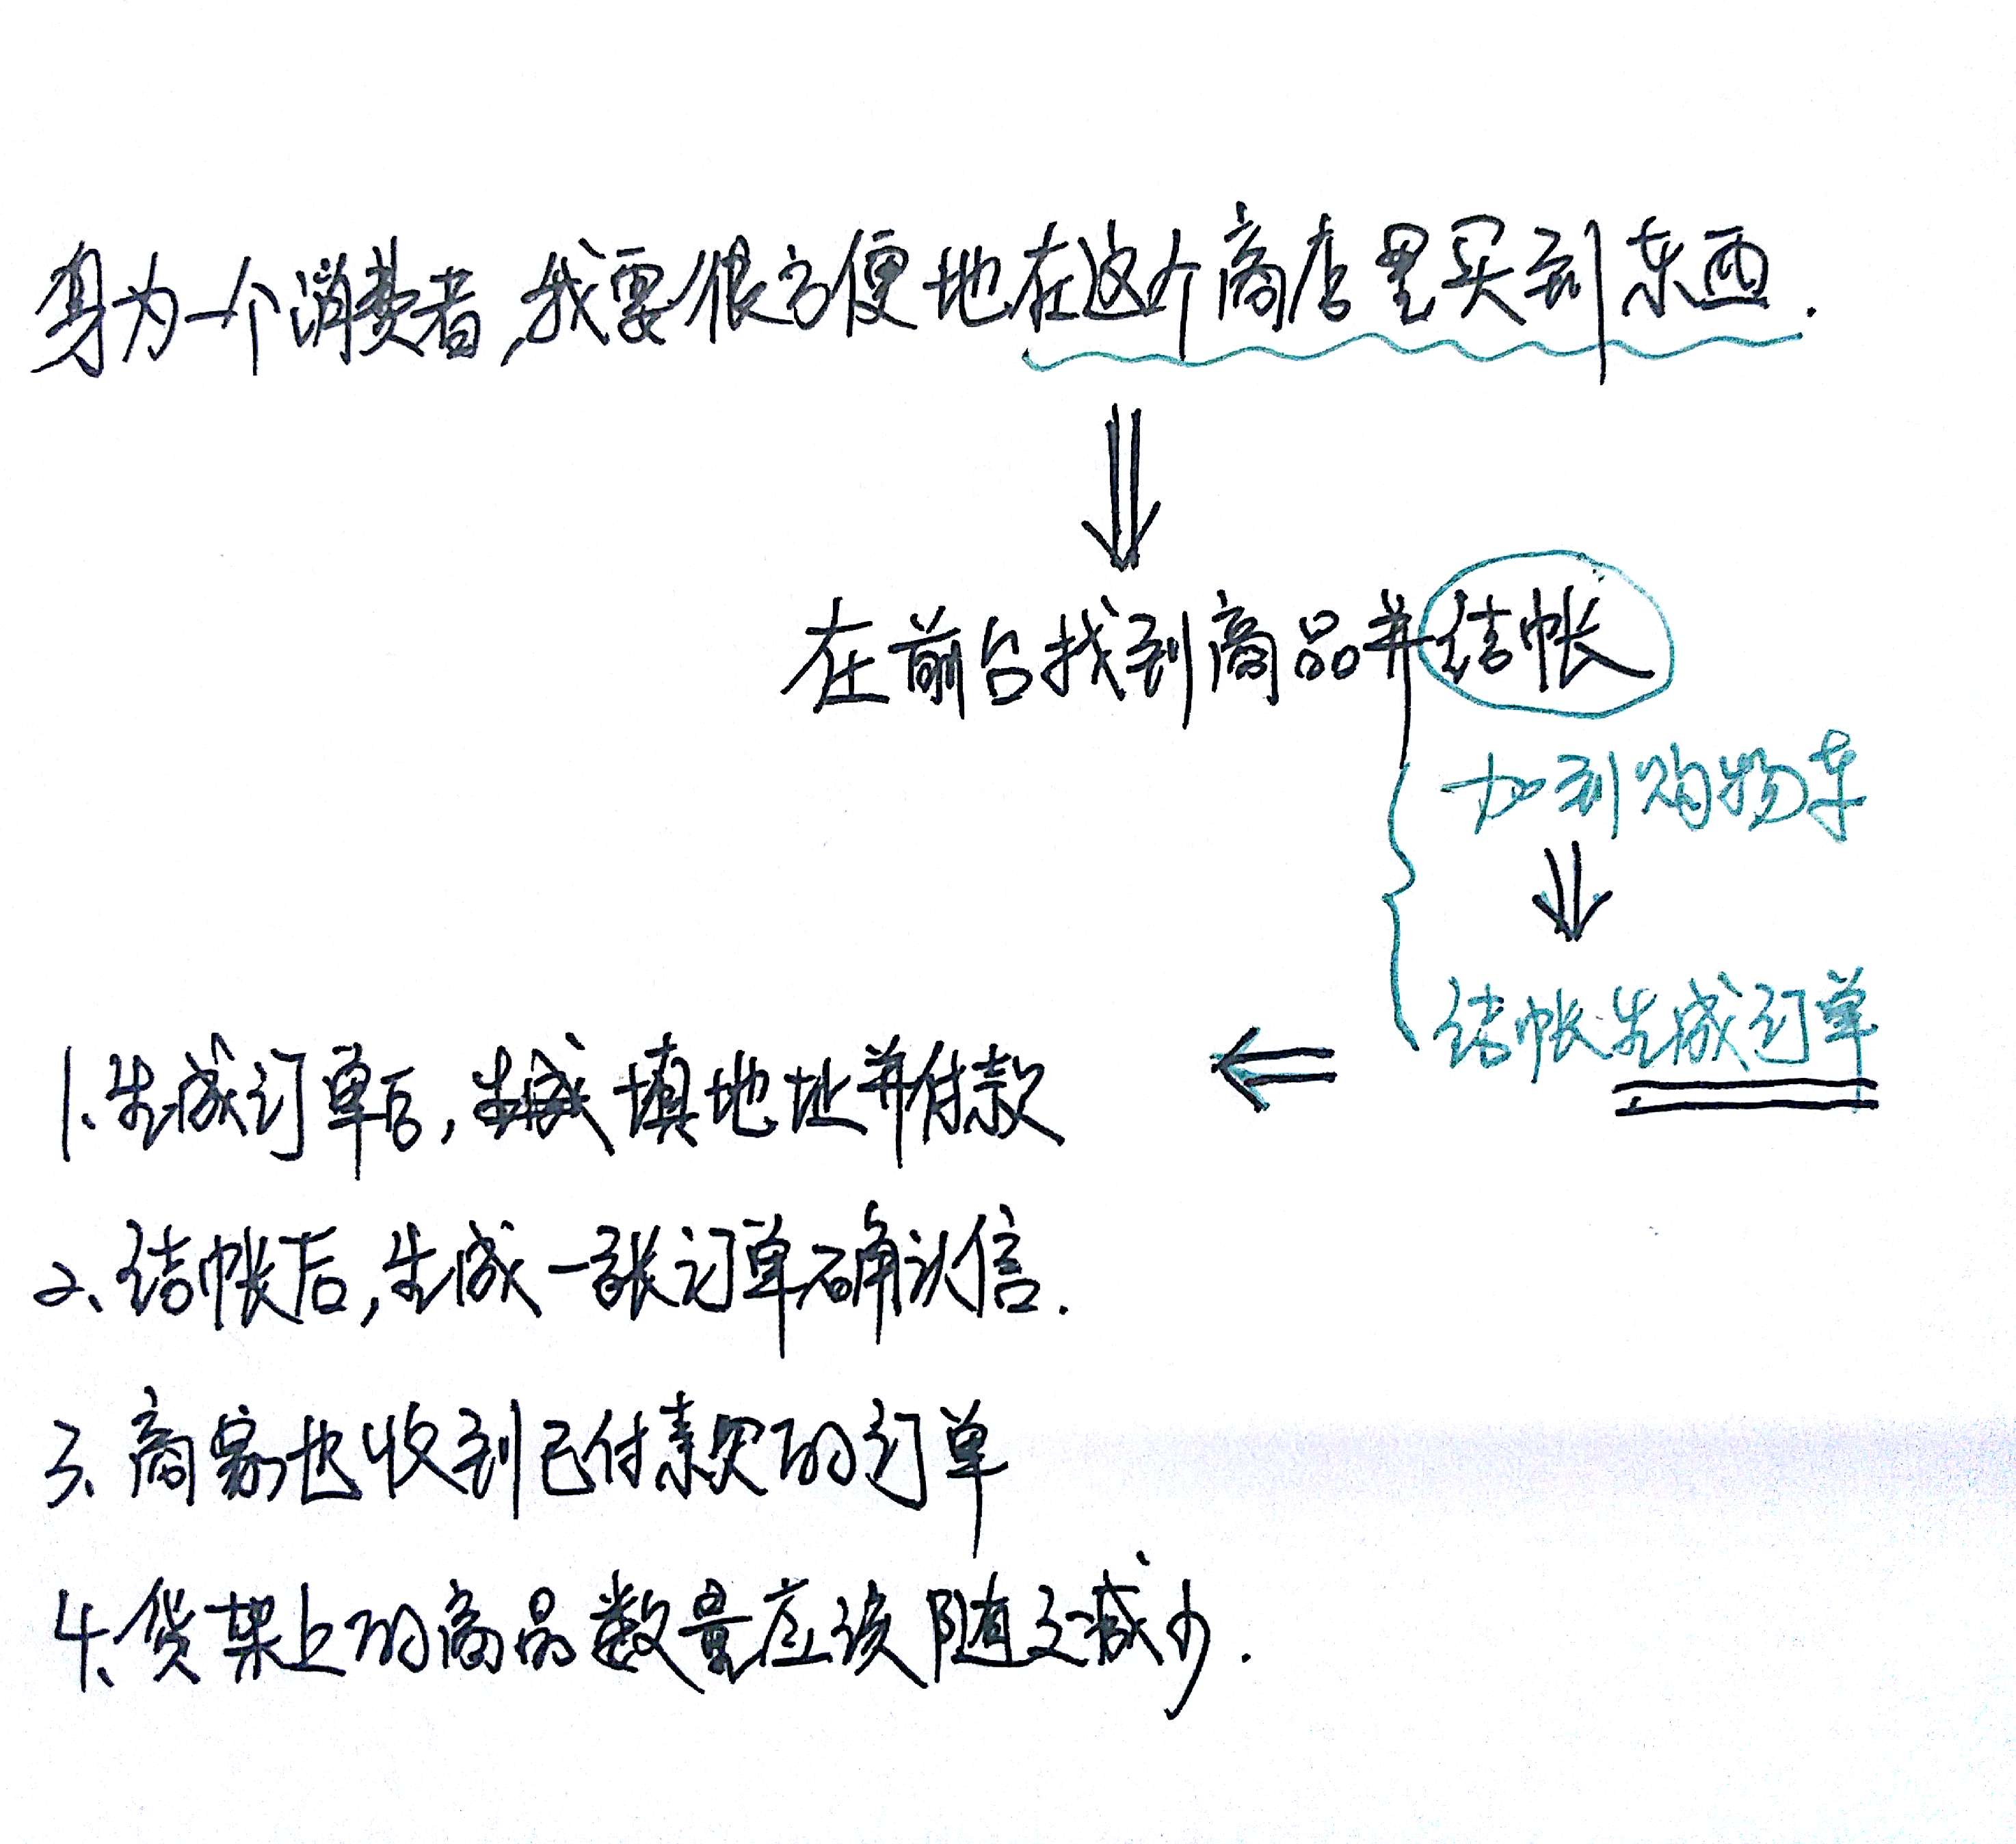 身为一个消费者,我要很方便地在这个商店里买到东西.
在前台找到商品并结帐
加到购物车
结帐生成订单
1、生成订单后,生成填地址并付款
2、结帐后,生成一张订单确认信.
3、商家也收到已付款的订单
4、货架上的商品数量应该随之减少.